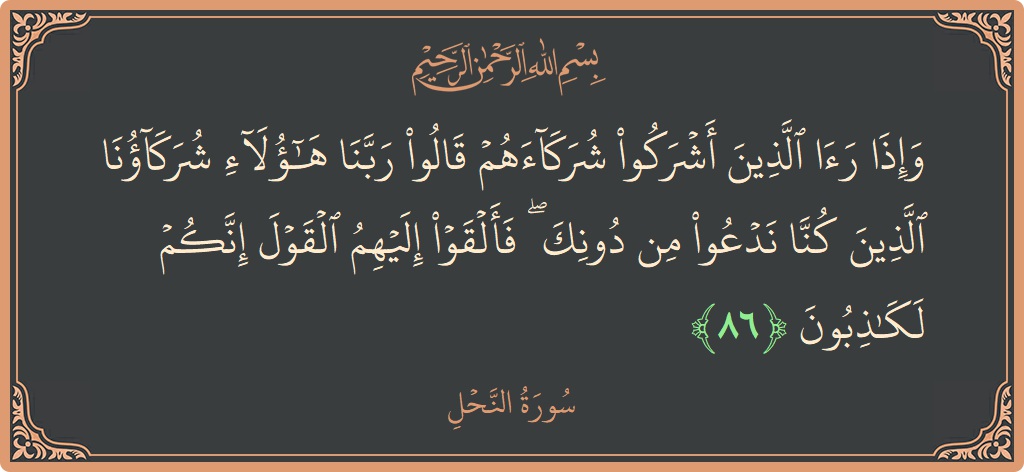 بِسْمِ اللَّهِ الرَّحْمَٰنِ الرَّحِيمِ
وَإِذَا رَءَا ٱلَّذِينَ أَشْرَكُوا۟ شُرَكَآءَهُمْ قَالُوا۟ رَبَّنَا هَـٰٓؤُلَآءِ شُرَكَآؤُنَا
ٱلَّذِينَ كُنَّا نَدْعُوا۟ مِن دُونِكَ ۖ فَأَلْقَوْا۟ إِلَيْهِمُ ٱلْقَوْلَ إِنَّكُمْ
لَكَـٰذِبُونَ ﴿٨٦﴾
سُورَةُ النَّحْلِ